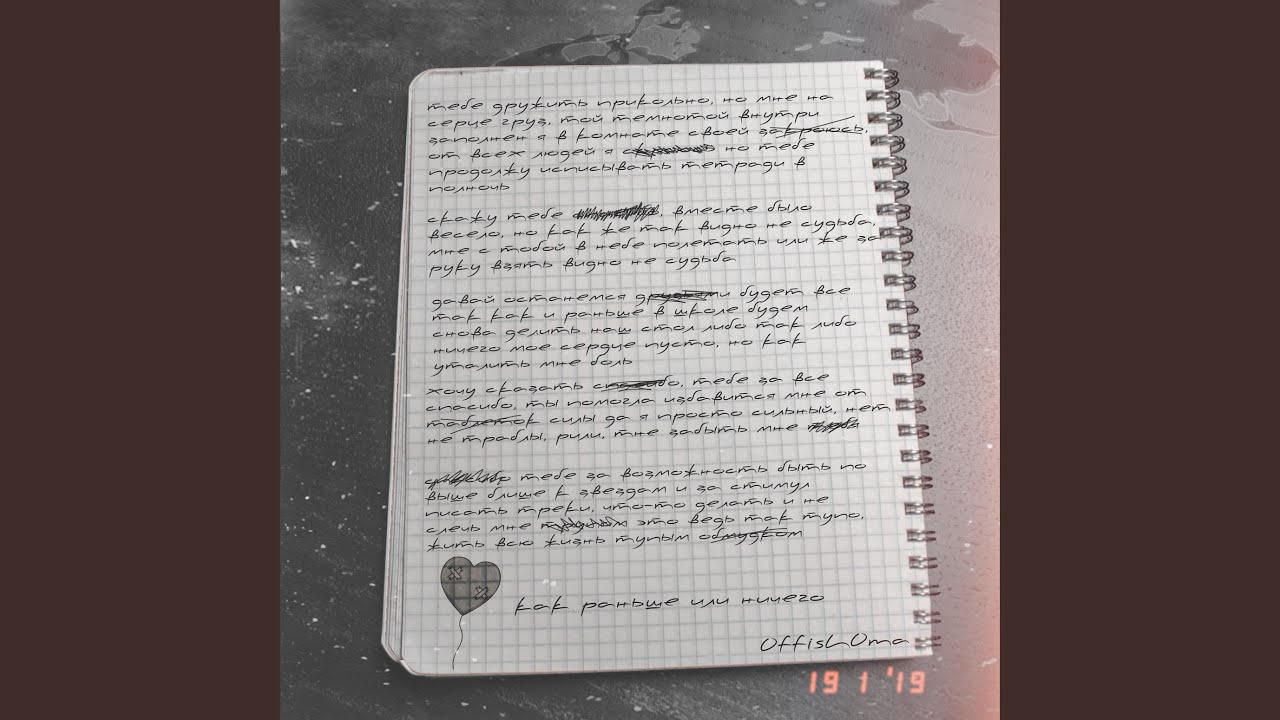 тебе дружить прикольно, но мне на
серце груз, той темнотой внутри
заполнен я в комнате своей закроюсь,
от всех людей я но тебе
продолжу исписывать тетради в
полночь
скажу тебе , вместе было
весело, но как же так видно не судьба,
мне с тобой в небе полетать или же за
руку взять видно не судьба
давай останемся друзьями будет все
так как и раньше в школе будем
снова делить наш стол либо так либо
ничего мое сердце пусто, но как
уталить мне боль
хочу сказать спасибо, тебе за все
спасибо, ты помогла избавится мне от
таблеток силы да я просто сильный, нет
не траблы, рили, тне забыть мне
тебе за возможность быть по
выше блище к звездам и за стимул
писать треки, что-то делать и не
слечь мне это ведь так тупо,
жить всю жизнь тупым обмудком
как раньше или ничего
OffishOma
19 1 '19